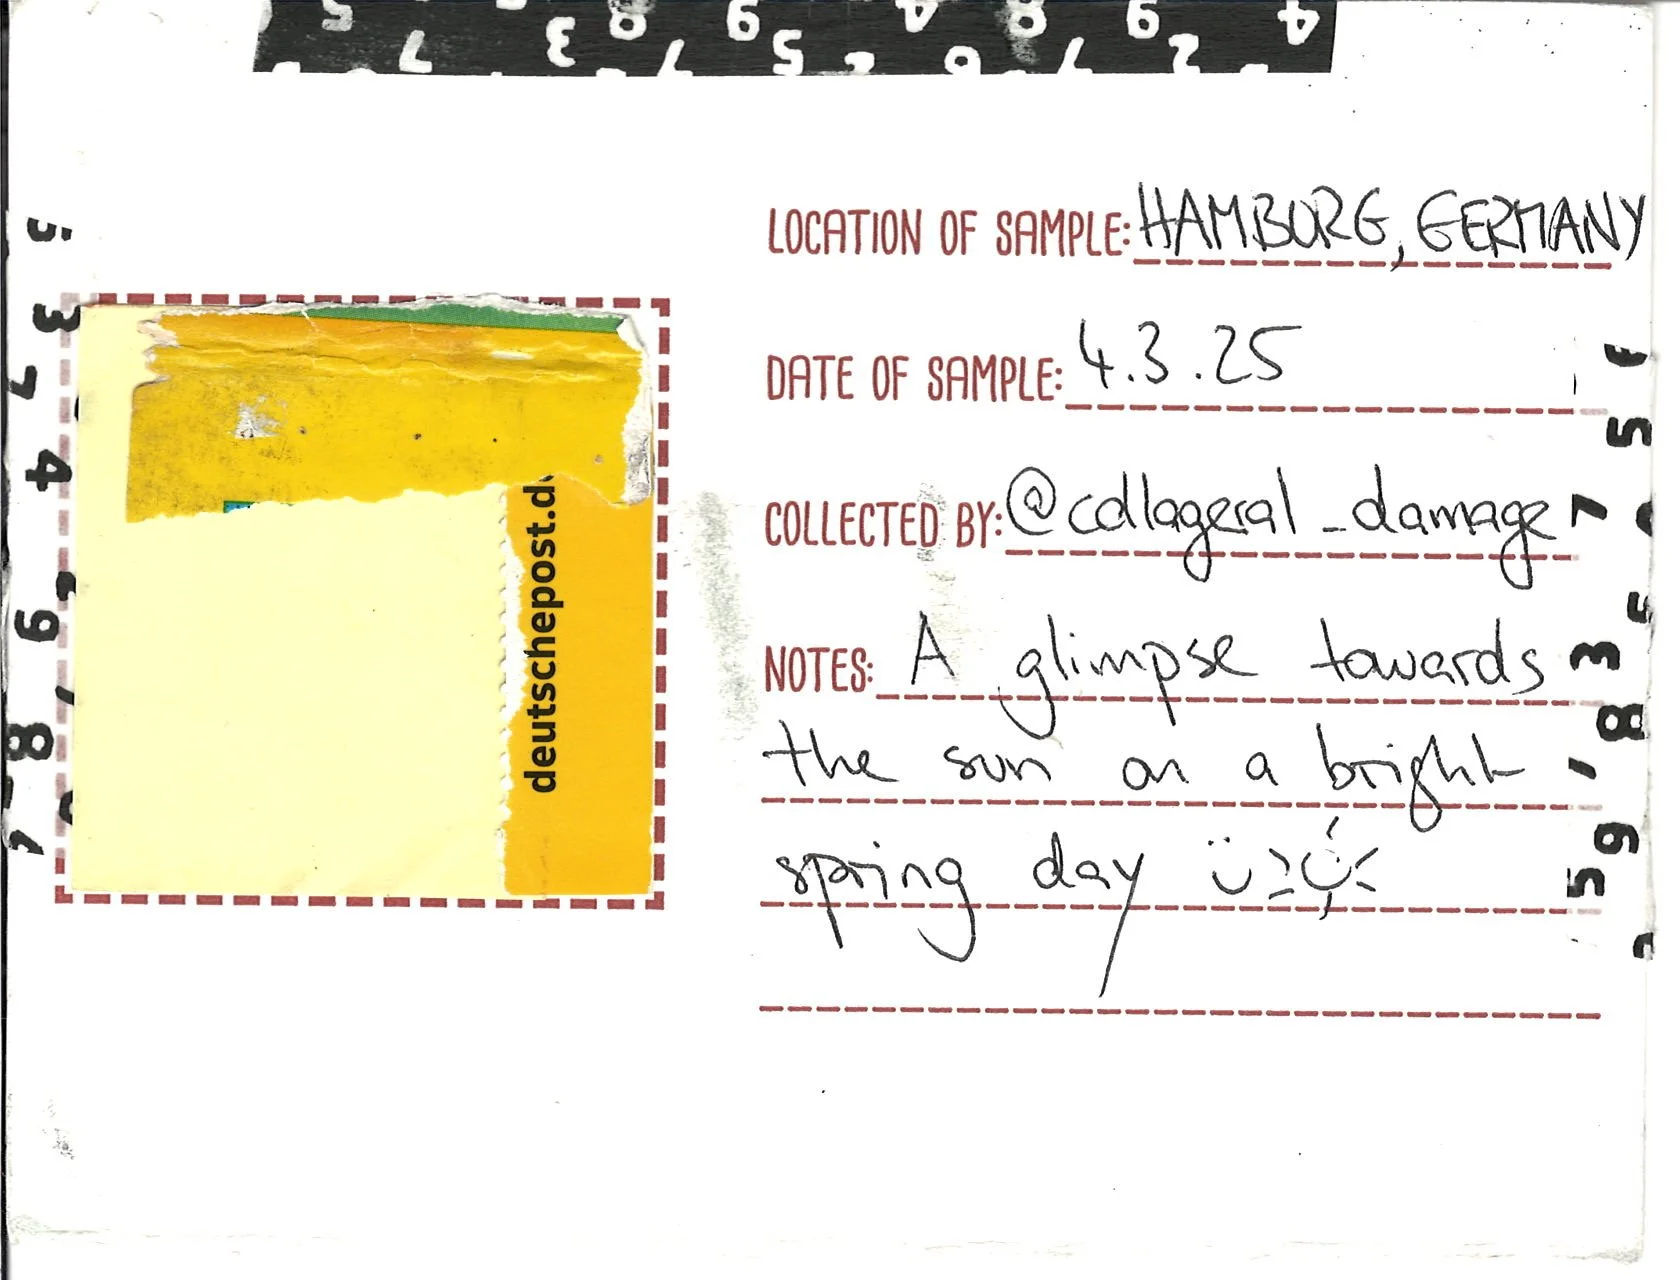 LOCATION OF SAMPLE: HAMBURG, GERMANY
DATE OF SAMPLE: 4.3.25
COLLECTED BY: @collageral_damage
NOTES: A glimpse towards
the sun on a bright
spring day
deutschepost.de